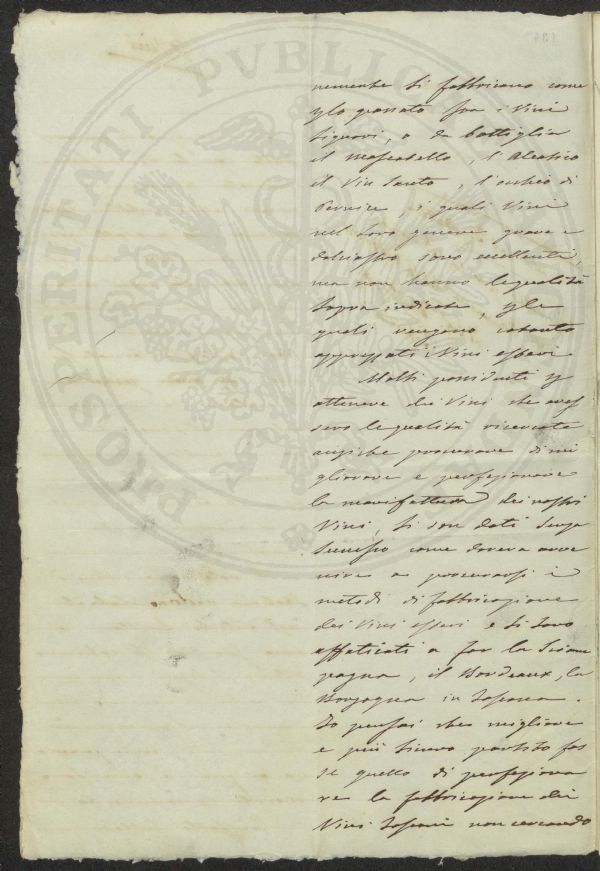 nemente si fabbricano come
p lo passato fra i Vini
liquori, o da bottiglia
il Moscadello, l'Aleatico
il Vin Santo, l'occhio di
Pernice, i quali Vini
nell loro genere grave e
dolciastro sono eccellenti,
ma non hanno le qualità
sopra indicate, p le
quali vengono cotanto
apprezzati i Vini esteri
Molti possidenti p
ottenere dei Vini che aves
sero le qualità ricercate
anziche procurare di mi
gliorare e perfezionare
la manifattura dei nostri
Vini, si son dati senza
Successo come doveva avve
nire a procurarsi i
metodi di fabbricazione
dei Vini esteri e si sono
affaticati a far lo Sciam
pagna, il Bordeaux, la
Borgogna in Toscana.
Io pensai che migliore
e più sicuro partito fos
se quello di perfeziona
re la fabbricazione dei
Vini Toscani non cercando
PROSPERITATI PVBLICAE